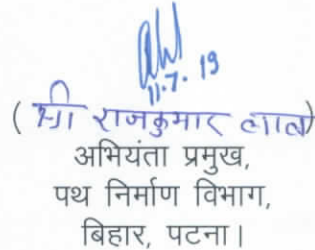 11.7.19
(श्री राजकुमार लाल)
अभियंता प्रमुख,
पथ निर्माण विभाग,
बिहार, पटना।